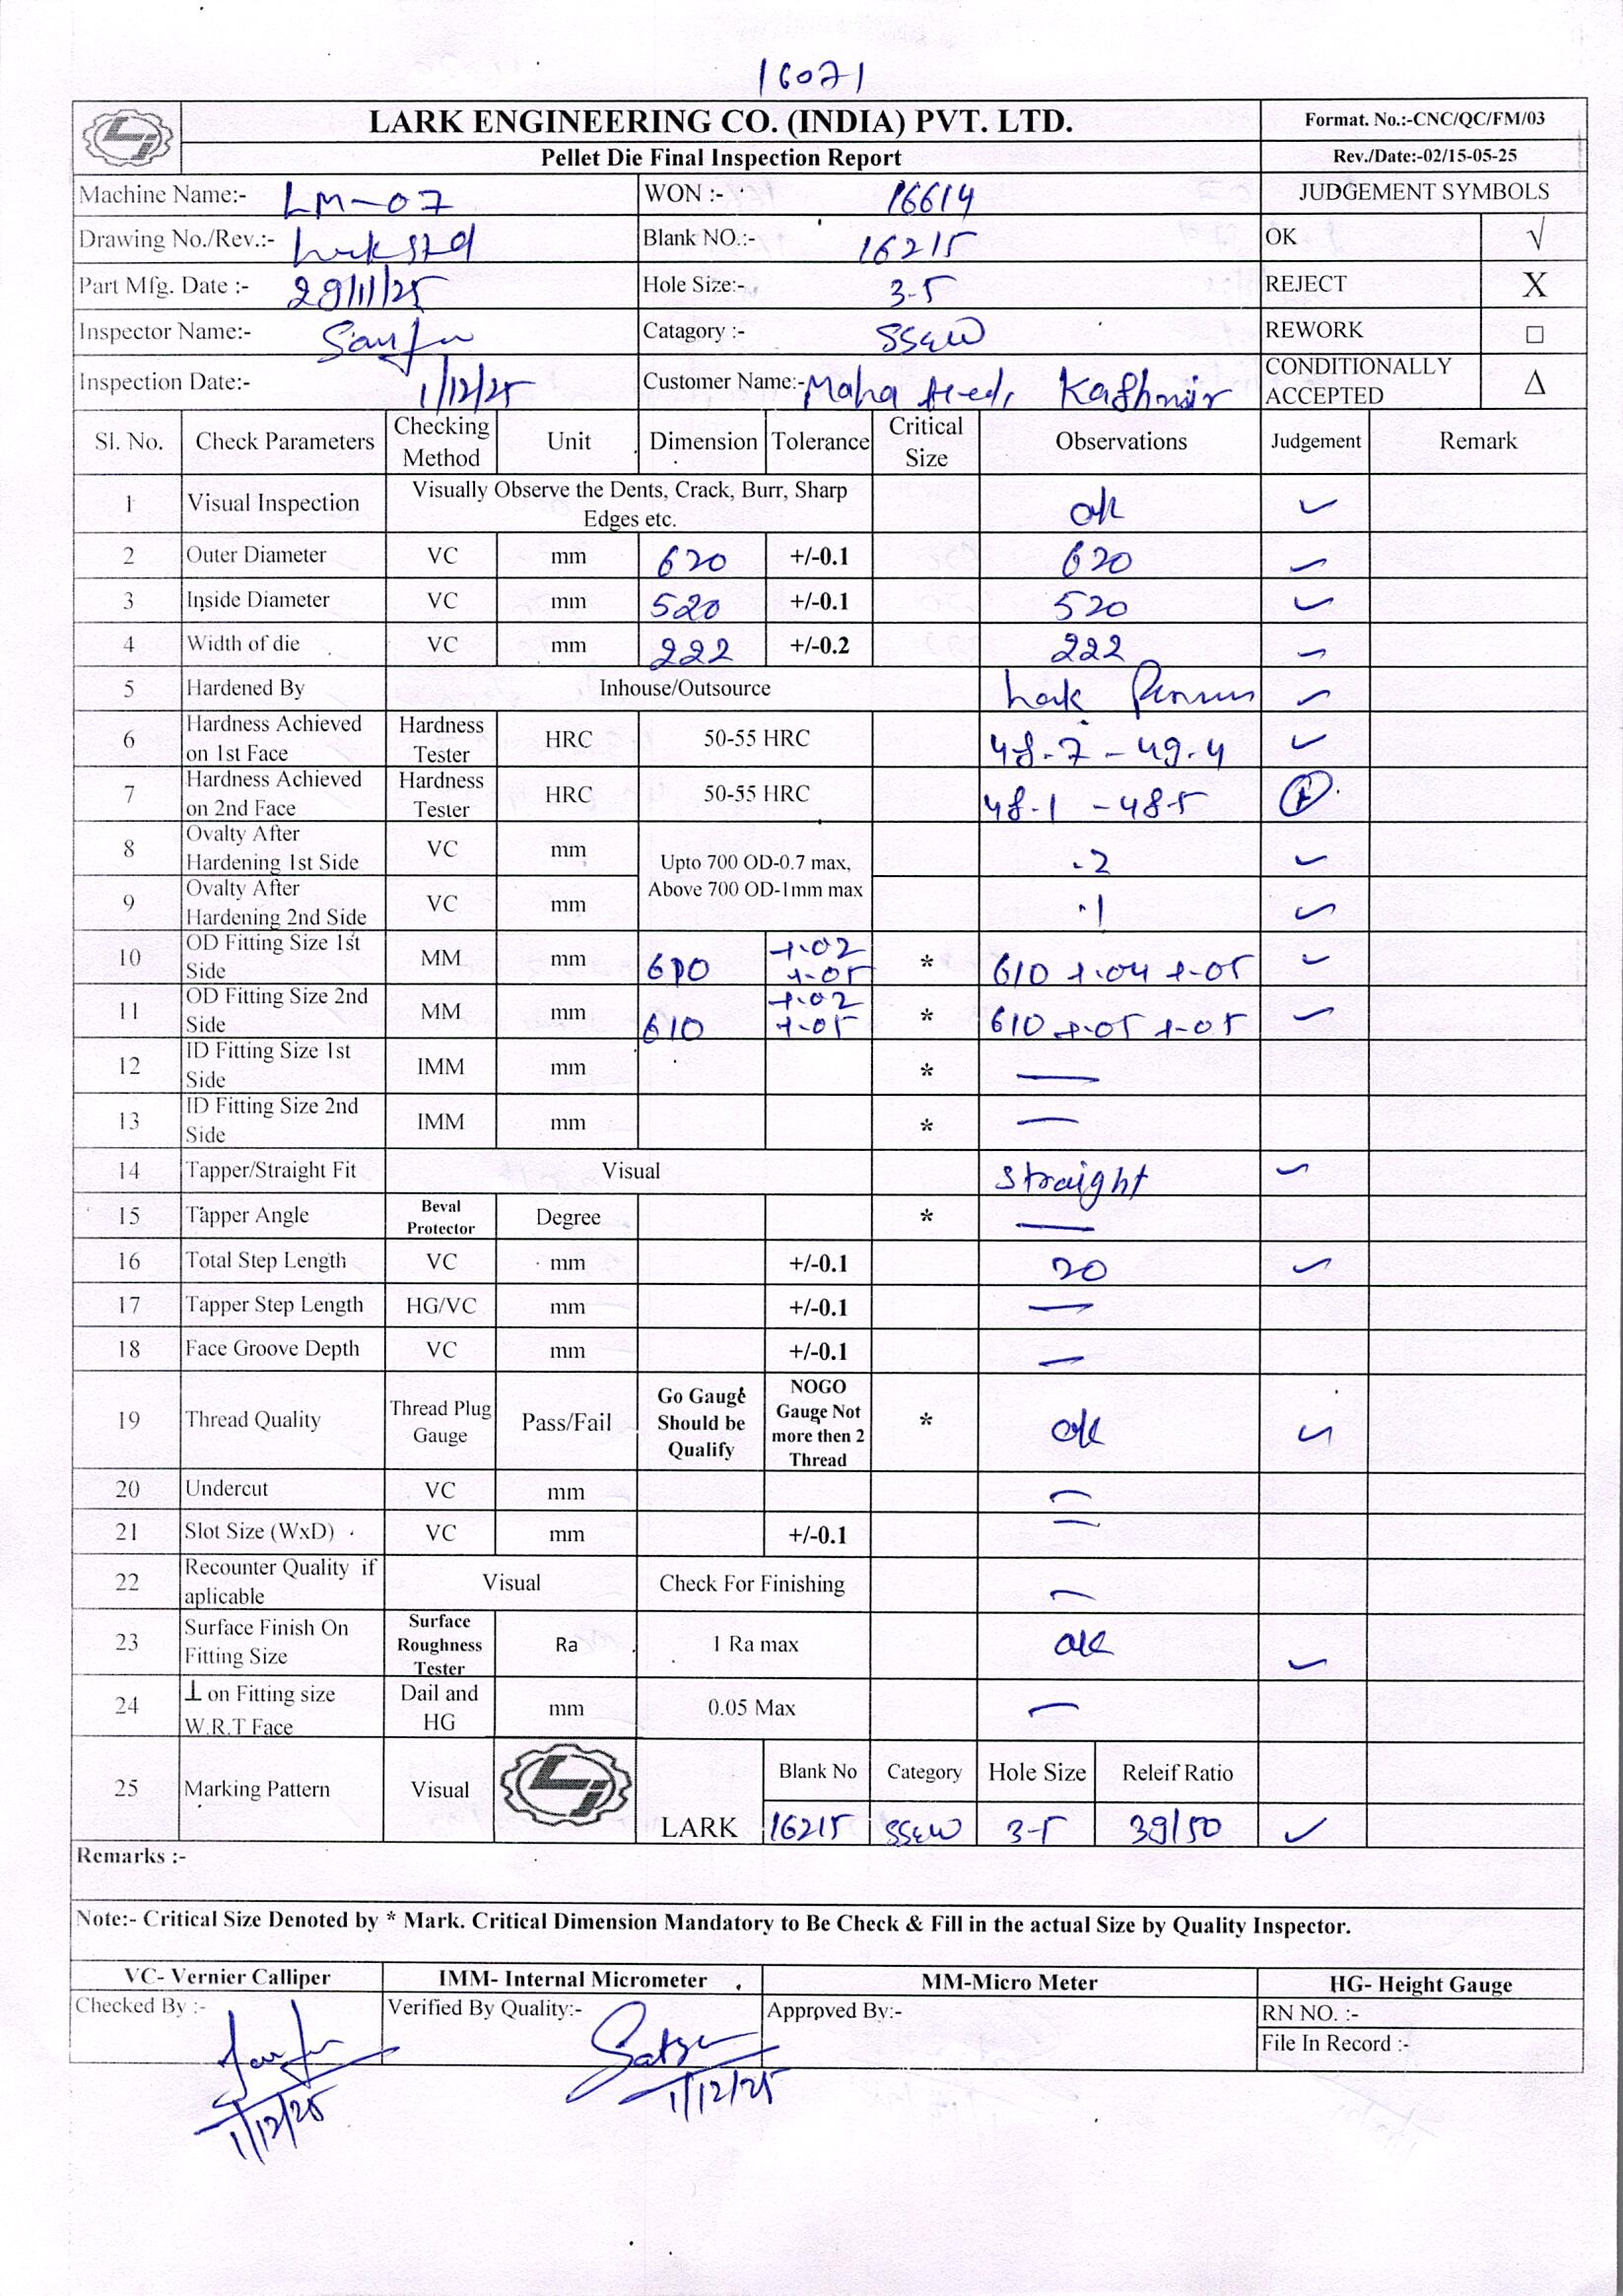 16071
LARK ENGINEERING CO. (INDIA) PVT. LTD.
Format. No.:-CNC/QC/FM/03
Pellet Die Final Inspection Report
Rev./Date:-02/15-05-25
Machine Name:- LM-07 WON :- 16614 JUDGEMENT SYMBOLS
Drawing No./Rev.:- Lark std Blank NO.:- 16215 OK √
Part Mfg. Date :- 29/11/25 Hole Size:- 3-5 REJECT X
Inspector Name:- Catagory :- SS&W REWORK □
Inspection Date:- 1/12/25 Customer Name:- Maha Kashmir CONDITIONALLY ACCEPTED Δ
Sl. No. Check Parameters Checking Method Unit Dimension Tolerance Critical Size Observations Judgement Remark
1 Visual Inspection Visually Observe the Dents, Crack, Burr, Sharp Edges etc. ok ✓
2 Outer Diameter VC mm 620 +/-0.1 620 ✓
3 Inside Diameter VC mm 520 +/-0.1 520 ✓
4 Width of die VC mm 222 +/-0.2 222 ✓
5 Hardened By Inhouse/Outsource Lark ✓
6 Hardness Achieved on 1st Face Hardness Tester HRC 50-55 HRC 48-7 - 49-4 ✓
7 Hardness Achieved on 2nd Face Hardness Tester HRC 50-55 HRC 48-1 - 48-5
8 Ovalty After Hardening 1st Side VC mm Upto 700 OD-0.7 max, Above 700 OD-1mm max .2 ✓
9 Ovalty After Hardening 2nd Side VC mm .1 ✓
10 OD Fitting Size 1st Side MM mm 610 +.02 +.05 * 610 +.04 +.05 ✓
11 OD Fitting Size 2nd Side MM mm 610 +.02 +.05 * 610 +.05 +.05 ✓
12 ID Fitting Size 1st Side IMM mm * —
13 ID Fitting Size 2nd Side IMM mm * —
14 Tapper/Straight Fit Visual straight ✓
15 Tapper Angle Beval Protector Degree * —
16 Total Step Length VC mm +/-0.1 20 ✓
17 Tapper Step Length HG/VC mm +/-0.1 —
18 Face Groove Depth VC mm +/-0.1 —
19 Thread Quality Thread Plug Gauge Pass/Fail Go Gauge Should be Qualify NOGO Gauge Not more then 2 Thread * ok ✓
20 Undercut VC mm —
21 Slot Size (WxD) VC mm +/-0.1 —
22 Recounter Quality if aplicable Visual Check For Finishing —
23 Surface Finish On Fitting Size Surface Roughness Tester Ra 1 Ra max ok ✓
24 ⊥ on Fitting size W.R.T Face Dail and HG mm 0.05 Max —
25 Marking Pattern Visual LARK Blank No Category Hole Size Releif Ratio
16215 SS&W 3-5 39/50 ✓
Remarks :-
Note:- Critical Size Denoted by * Mark. Critical Dimension Mandatory to Be Check & Fill in the actual Size by Quality Inspector.
VC- Vernier Calliper IMM- Internal Micrometer MM-Micro Meter HG- Height Gauge
Checked By :- Verified By Quality:- Approved By:- RN NO. :-
File In Record :-
1/12/25 1/12/25